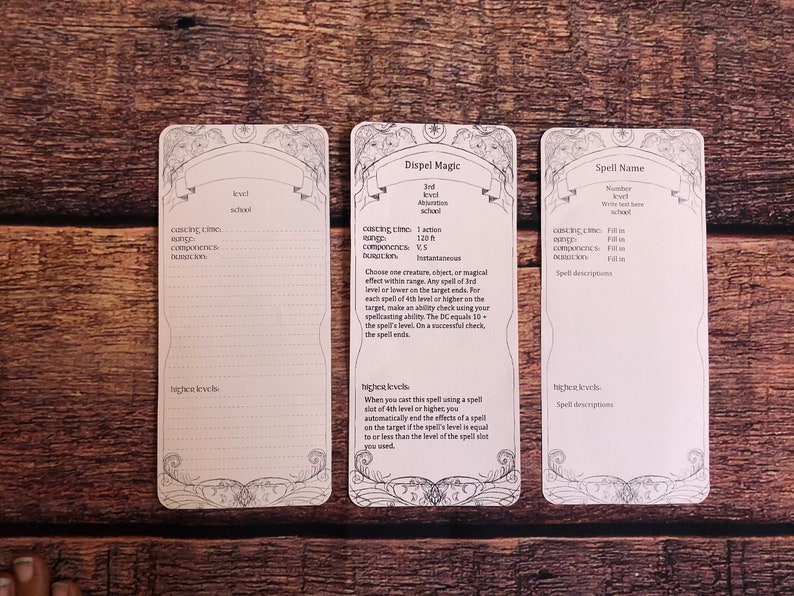 level
school
casting time:
range:
components:
duration:
higher levels:
Dispel Magic
3rd
level
Abjuration
school
casting time: 1 action
range: 120 ft
components: V, S
duration: Instantaneous
Choose one creature, object, or magical
effect within range. Any spell of 3rd
level or lower on the target ends. For
each spell of 4th level or higher on the
target, make an ability check using your
spellcasting ability. The DC equals 10 +
the spell's level. On a successful check,
the spell ends.
higher levels:
When you cast this spell using a spell
slot of 4th level or higher, you
automatically end the effects of a spell
on the target if the spell's level is equal
to or less than the level of the spell slot
you used.
Spell Name
Number
level
Write text here
school
casting time: Fill in
range: Fill in
components: Fill in
duration: Fill in
Spell descriptions
higher levels:
Spell descriptions